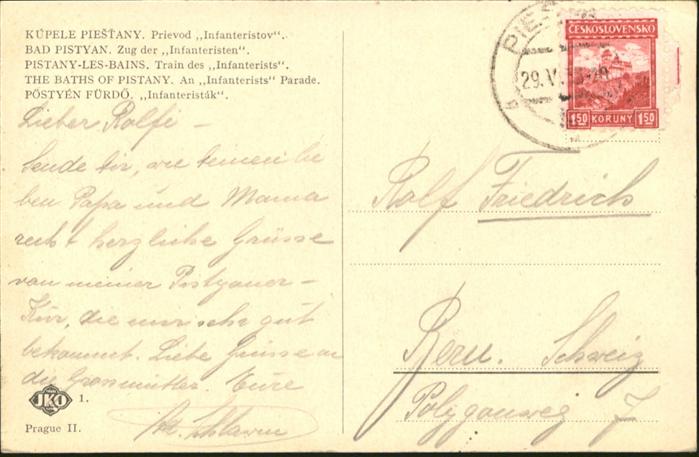 KÚPELE PIEŠŤANY. Prievod „Infanteristov“.
BAD PISTYAN. Zug der „Infanteristen“.
PISTANY-LES-BAINS. Train des „Infanterists“.
THE BATHS OF PISTANY. An „Infanterists“ Parade.
PÖSTYÉN FÜRDŐ. „Infanteristák“.
Lieber Rolfi –
Sende dir, wie deinen lie
ben Papa und Mama
recht herzliche Grüsse
von meiner Pistyaner-
Kur, die mir sehr gut
bekommt. Liebe Grüsse an
die Grossmutter. Eure
JKO 1.
Prague II.
ČESKOSLOVENSKO
1·50 KORUNY 1·50
PIEŠ
29.V
Rolf Friedrich
Bern. Schweiz
Polygonweg 7